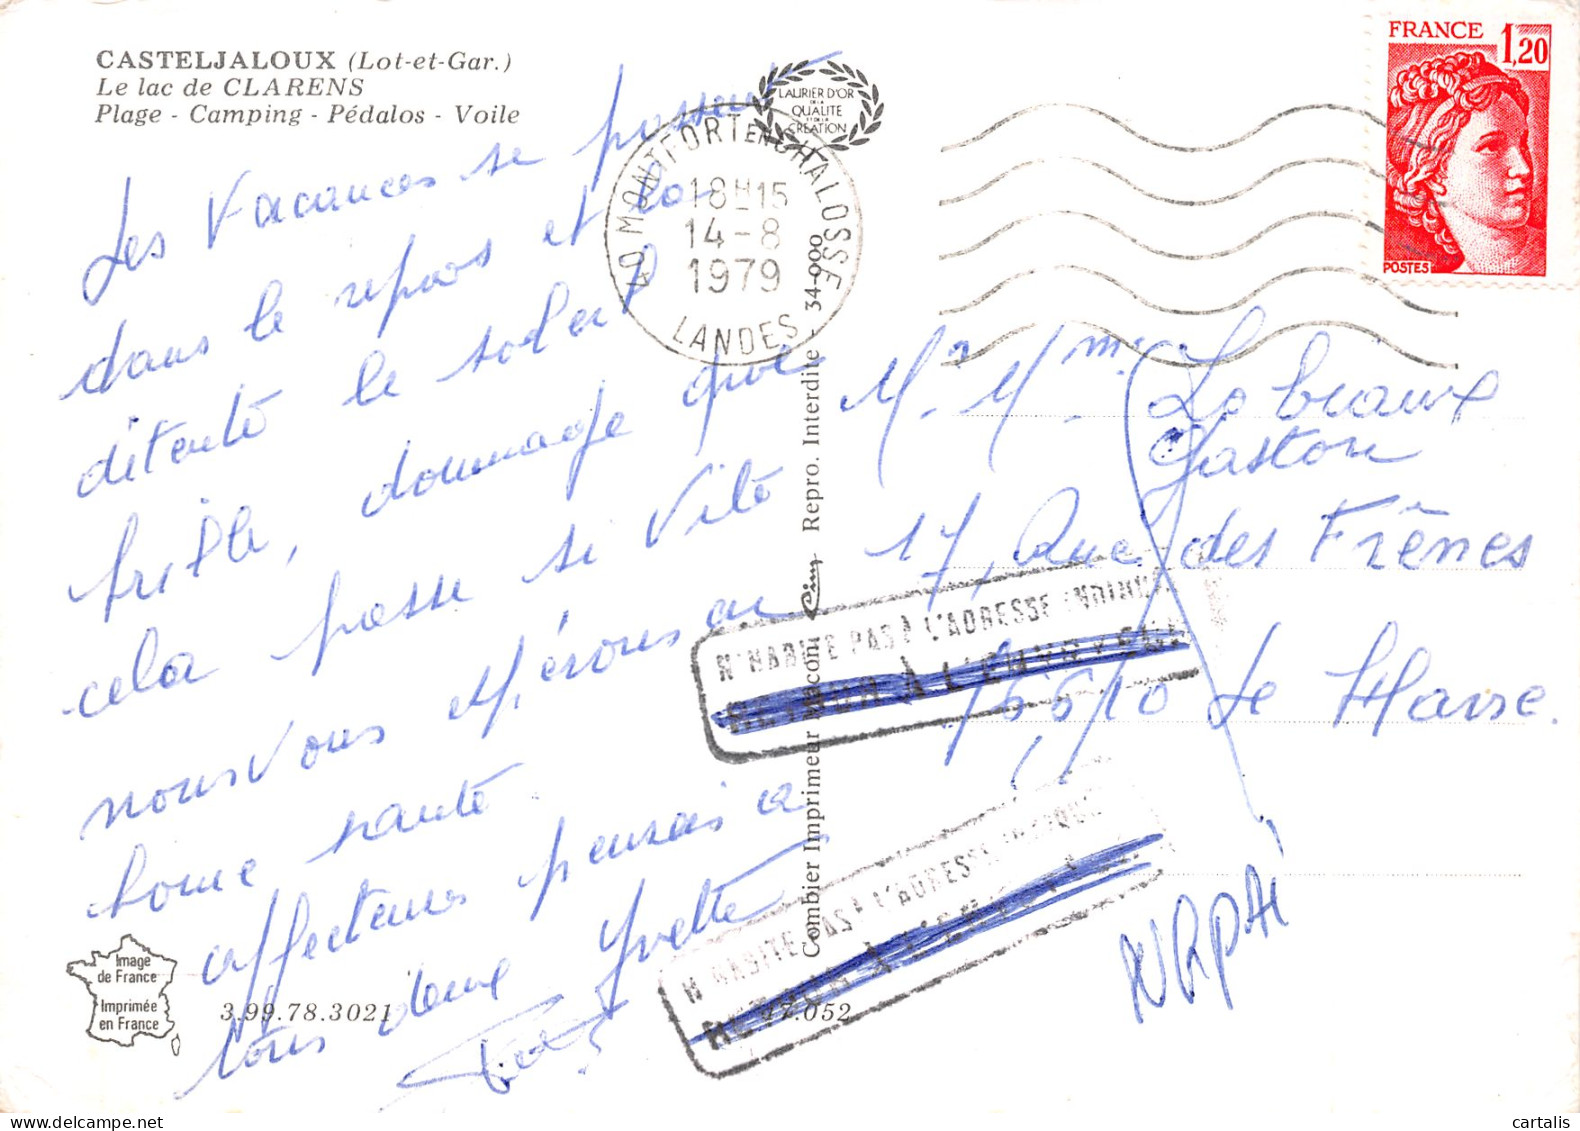 CASTELJALOUX (Lot-et-Gar.)
Le lac de CLARENS
Plage - Camping - Pédalos - Voile
Les Vacances se passent
dans le repos et la
détente le soleil
brille, dommage que
cela passe si vite
nous vous espérons en
bonne santé.
affectueuses pensées à
tous deux Yvette
Image
de France
Imprimée
en France
3.99.78.3021
47.052
LAURIER D'OR
DE LA
QUALITE
ET DE LA
CREATION
40 MONTFORT EN CHALOSSE
18H15
14-8
1979
LANDES
Combier Imprimeur Macon Cim Repro. Interdite - 34-000
FRANCE
1,20
POSTES
Mr. Mme
Gaston
17, Rue des Frênes
N'HABITE PAS À L'ADRESSE INDIQUÉE
RETOUR À L'ENVOYEUR
Le Havre.
N'HABITE PAS À L'ADRESSE INDIQUÉE
RETOUR À L'ENVOYEUR
NRPAI
cartalis